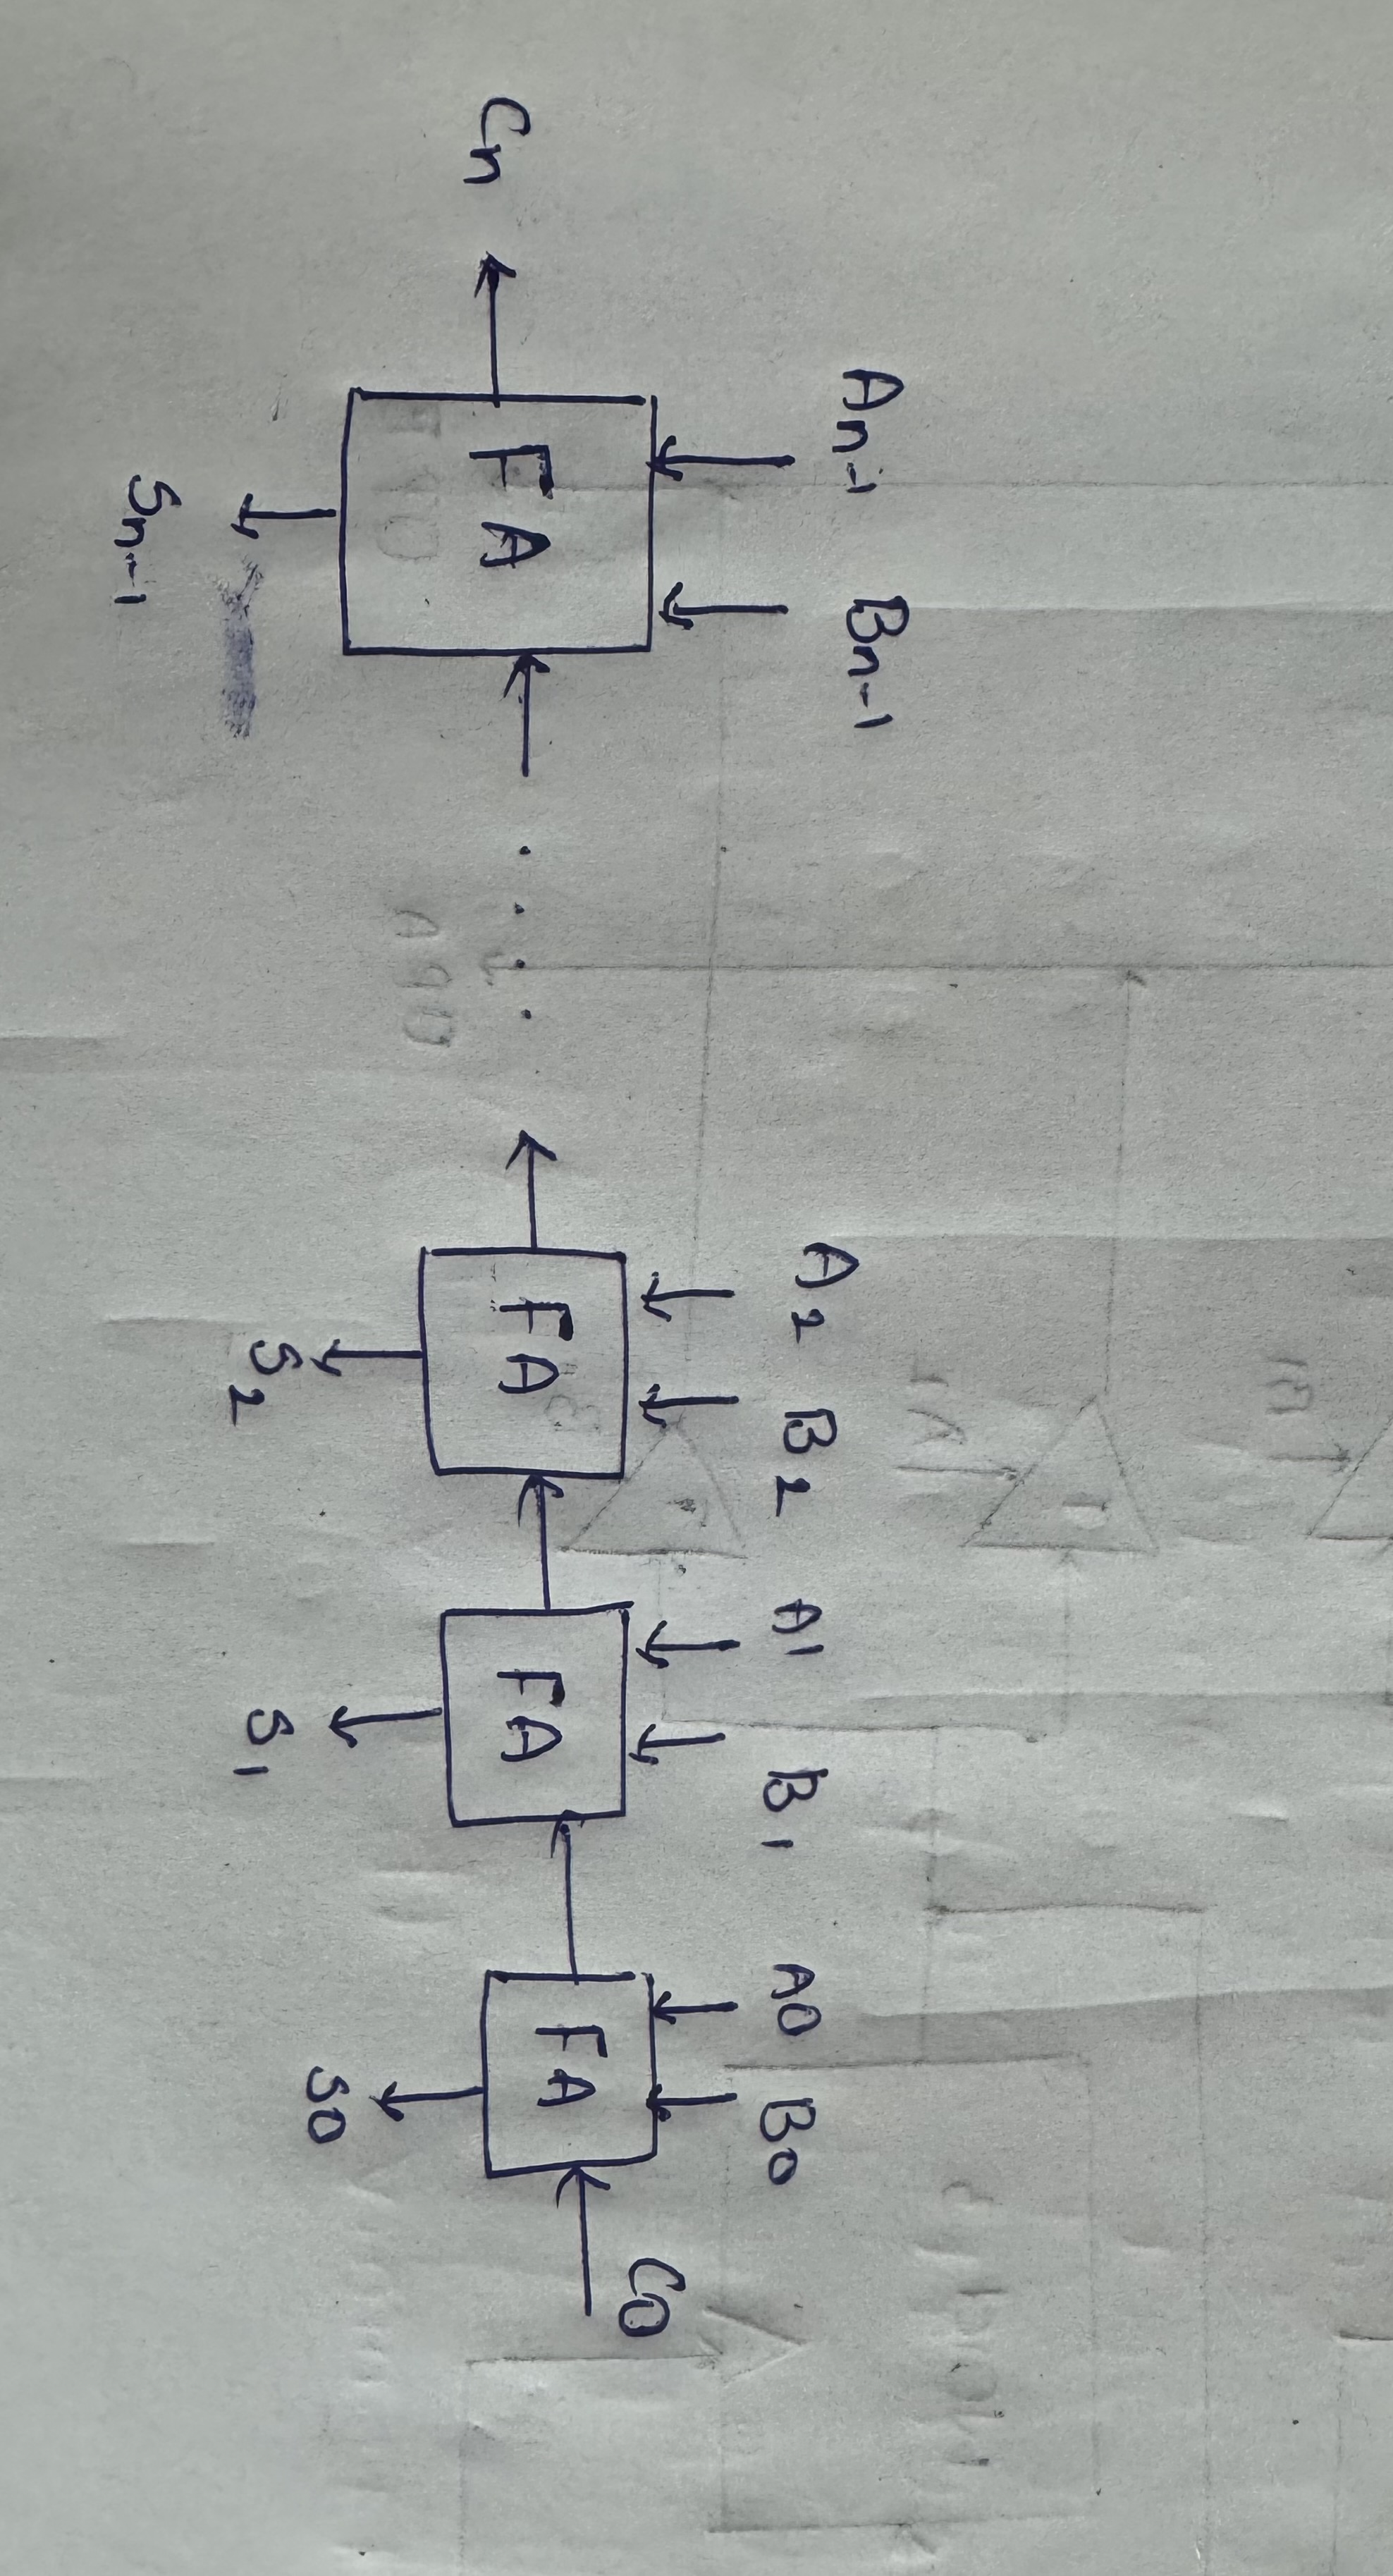 An-1 Bn-1
A2 B2 A1 B1 A0 B0
C0
Cn FA .... FA FA FA
S0
S2 S1
Sn-1